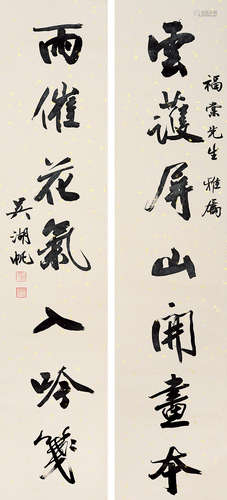 雲護屏山開畫本
福棠先生雅屬
雨催花氣入吟箋
吳湖帆